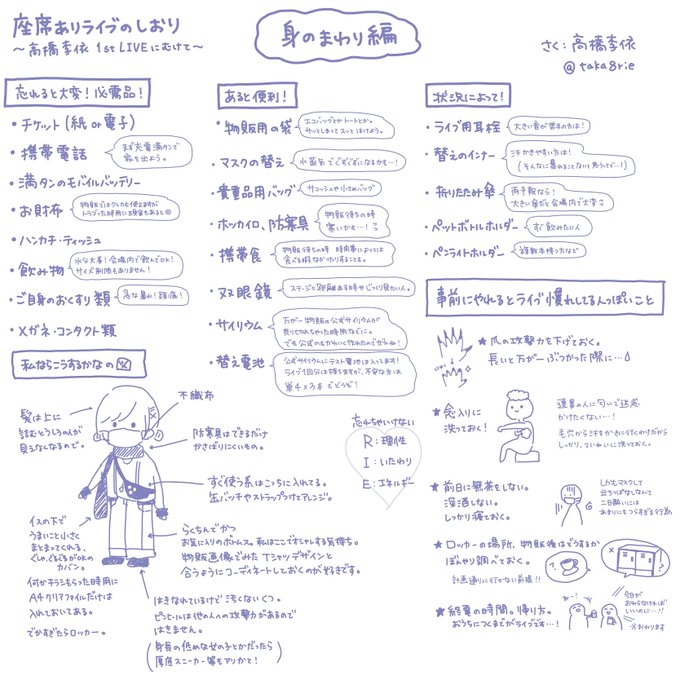 座席ありライブのしおり
〜高橋李依 1st LIVEにむけて〜
身のまわり編
さく：高橋李依
@taka8rie
忘れると大変！必需品！
・チケット（紙or電子）
・携帯電話
まず充電満タンで
家を出よう。
・満タンのモバイルバッテリー
・お財布
・ハンカチ・ティッシュ
・飲み物
水分大事！会場内で飲んでOK！
サイズ制限もありません！
・ご自身のおくすり類
急な暑れ！頭痛！
・メガネ・コンタクト類
あると便利！
・物販用の袋
エコバッグとかトートとか。
サッとしまってスッとはけよう。
・マスクの替え
水蒸気でぐずぐずになるかも…！
・貴重品用バッグ
サコッシュや小さめバッグ
・ホッカイロ、防寒具
物販待ちの時
寒いかも…！
・携帯食
物販待ちの時 時間帯によっては
食べる暇なかったりすることも。
・双眼鏡
ステージと距離ある時や じっくり見たい人。
・サイリウム
万が一物販の公式サイリウムが
売り切れちゃった時用などに。
でも公式のもかわいく作れたのでぜひね！
・替え電池
公式サイリウムにテスト電池は入ってます！
ライブ1回分は持ちますが、不安な方は
単4×3本でどうぞ！
状況によって！
・ライブ用耳栓
大きい音が苦手の方は！
・替えのインナー
汗かきやすい方は！
（そんなに暴れることないと思うけど…！）
・折りたたみ傘
雨予報なら！
大きい傘だと会場内で大変
・ペットボトルホルダー
すぐ飲みたい人
・ペンライトホルダー
複数本持つ方など
事前にやれるとライブ慣れしてる人っぽいこと
★爪の攻撃力を下げておく。
長いと万が一ぶつかった際に…
★念入りに
洗っておく！
運営の人に匂いで迷惑
かけたくない…！
毛穴から汗をかきに行くわけだから
しっかり、ていねいに洗っておく。
★前日に無茶をしない。
深酒しない。
しっかり寝ておく。
しかもマスクして
立ちっぱなしなんて
二日酔いには
あまりにもつらすぎる行為
★ロッカーの場所、物販後はどうするか
ぼんやり調べておく。
計画通りに行かない前提！！
★終演の時間。帰り方。
おうちにつくまでがライブです…！
今日が
おわらなければ
いいのに…！！
※おわります
私ならこうするかなの図
不織布
髪は上に
詰むとうしろの人が
見えなくなるので。
防寒具はできるだけ
かさばりにくいもの。
すぐ使う系はこっちに入れてる。
缶バッチやストラップ付けアレンジ。
イスの下で
うまいこと小さく
まとまってくれる、
ぐしゃぐしゃがOKの
カバン。
何かチラシもらった時用に
A4クリアファイルだけは
入れておいてある。
でかすぎたらロッカー。
らくちんでかつ
お気に入りのボトムス。私はここでオシャレする気持ち。
物販画像でみたTシャツデザインと
合うようにコーディネートしておくのが好きです。
はきなれているけど汚くないくつ。
ピンヒールは他の人への攻撃力があるので
はきません。
（身長の低めな女の子とかだったら
厚底スニーカー等もアリかと！）
忘れちゃいけない
R：理性
I：いたわり
E：エネルギー